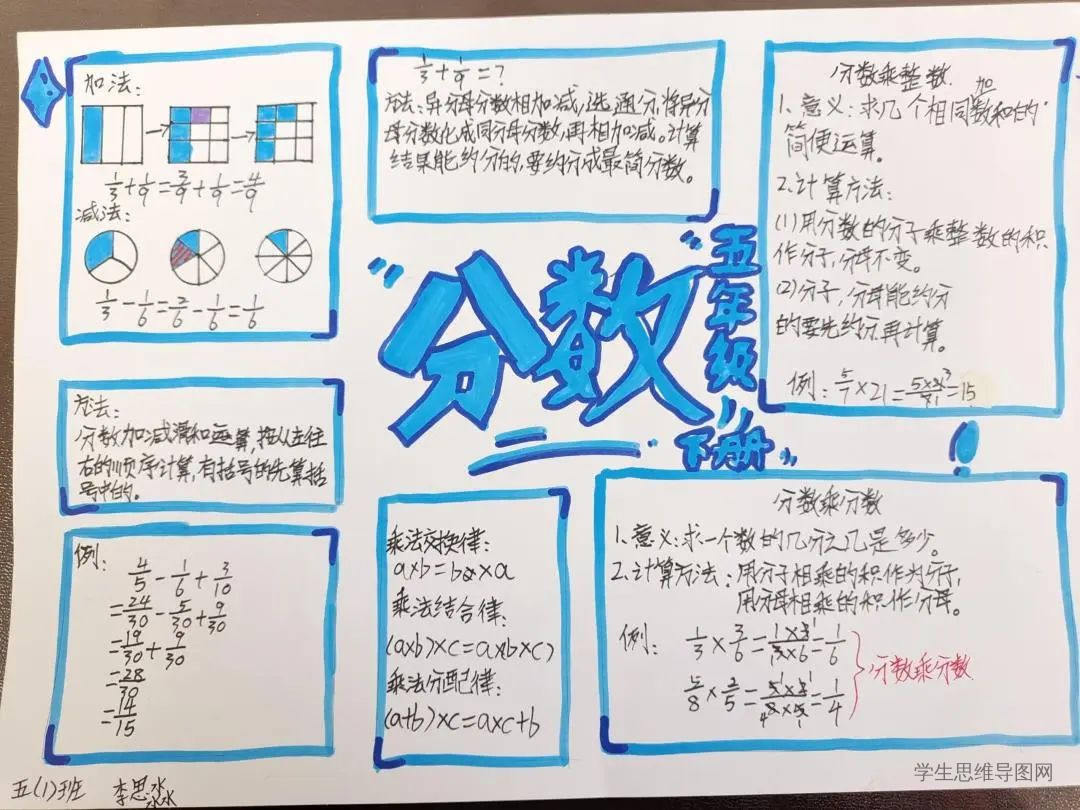 加法：
1/3+1/9=3/9+1/9=4/9
减法：
1/3-1/6=2/6-1/6=1/6
1/3+1/9=？
方法：异分母分数相加减，选通分，将异分
母分数化成同分母分数，再相加减。计算
结果能约分的，要约分成最简分数。
分数乘整数
1、意义：求几个相同加数和的
简便运算。
2.计算方法：
(1)用分数的分子乘整数的积
作分子，分母不变。
(2)分子，分母能约分
的要先约分再计算。
例：5/7×21=5×21³/7₁=15
"分数"
"五年级"
下册"
方法：
分数加减混和运算，按从左往
右的顺序计算，有括号的先算括
号中的。
例：
4/5-1/6+3/10
=24/30-5/30+9/30
=19/30+9/30
=28/30
=14/15
乘法交换律：
a×b=b×a
乘法结合律：
(a×b)×c=a×(b×c)
乘法分配律：
(a+b)×c=a×c+b
分数乘分数
1.意义：求一个数的几分之几是多少。
2.计算方法：用分子相乘的积作为分子，
用分母相乘的积作分母。
例：
1/3×3/6=1×3/3×6=1/6
5/8×2/5=5×2/8×5=1/4
分数乘分数
五(1)班 李思淼
学生思维导图网